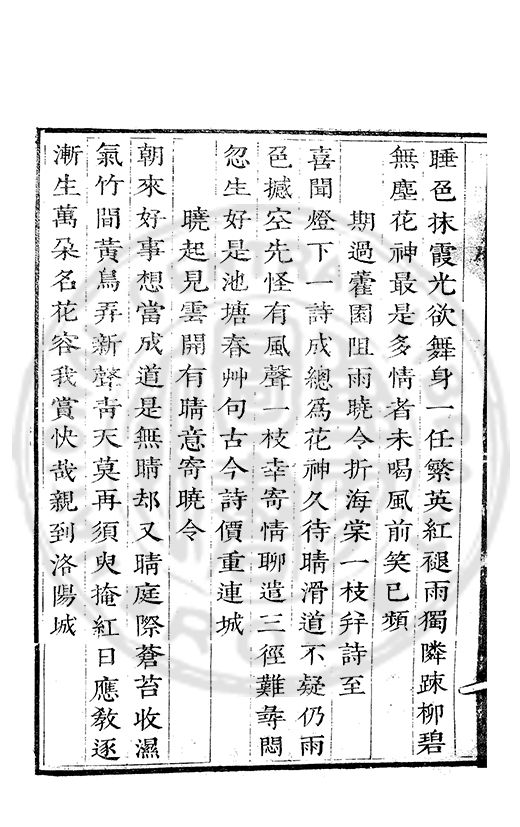 睡色抹霞光欲舞身一任繁英紅褪雨獨隣踈柳碧
無塵花神最是多情者未喝風前笑已頻
期過藿園阻雨曉令折海棠一枝幷詩至
喜聞燈下一詩成總爲花神久待晴滑道不疑仍雨
色撼空先怪有風聲一枝幸寄情聊遣三徑難尋悶
忽生好是池塘春艸句古今詩價重連城
曉起見雲開有晴意寄曉令
朝來好事想當成道是無晴却又晴庭際蒼苔收濕
氣竹間黃鳥弄新聲靑天莫再須臾掩紅日應敎逐
漸生萬朶名花容我賞快哉親到洛陽城